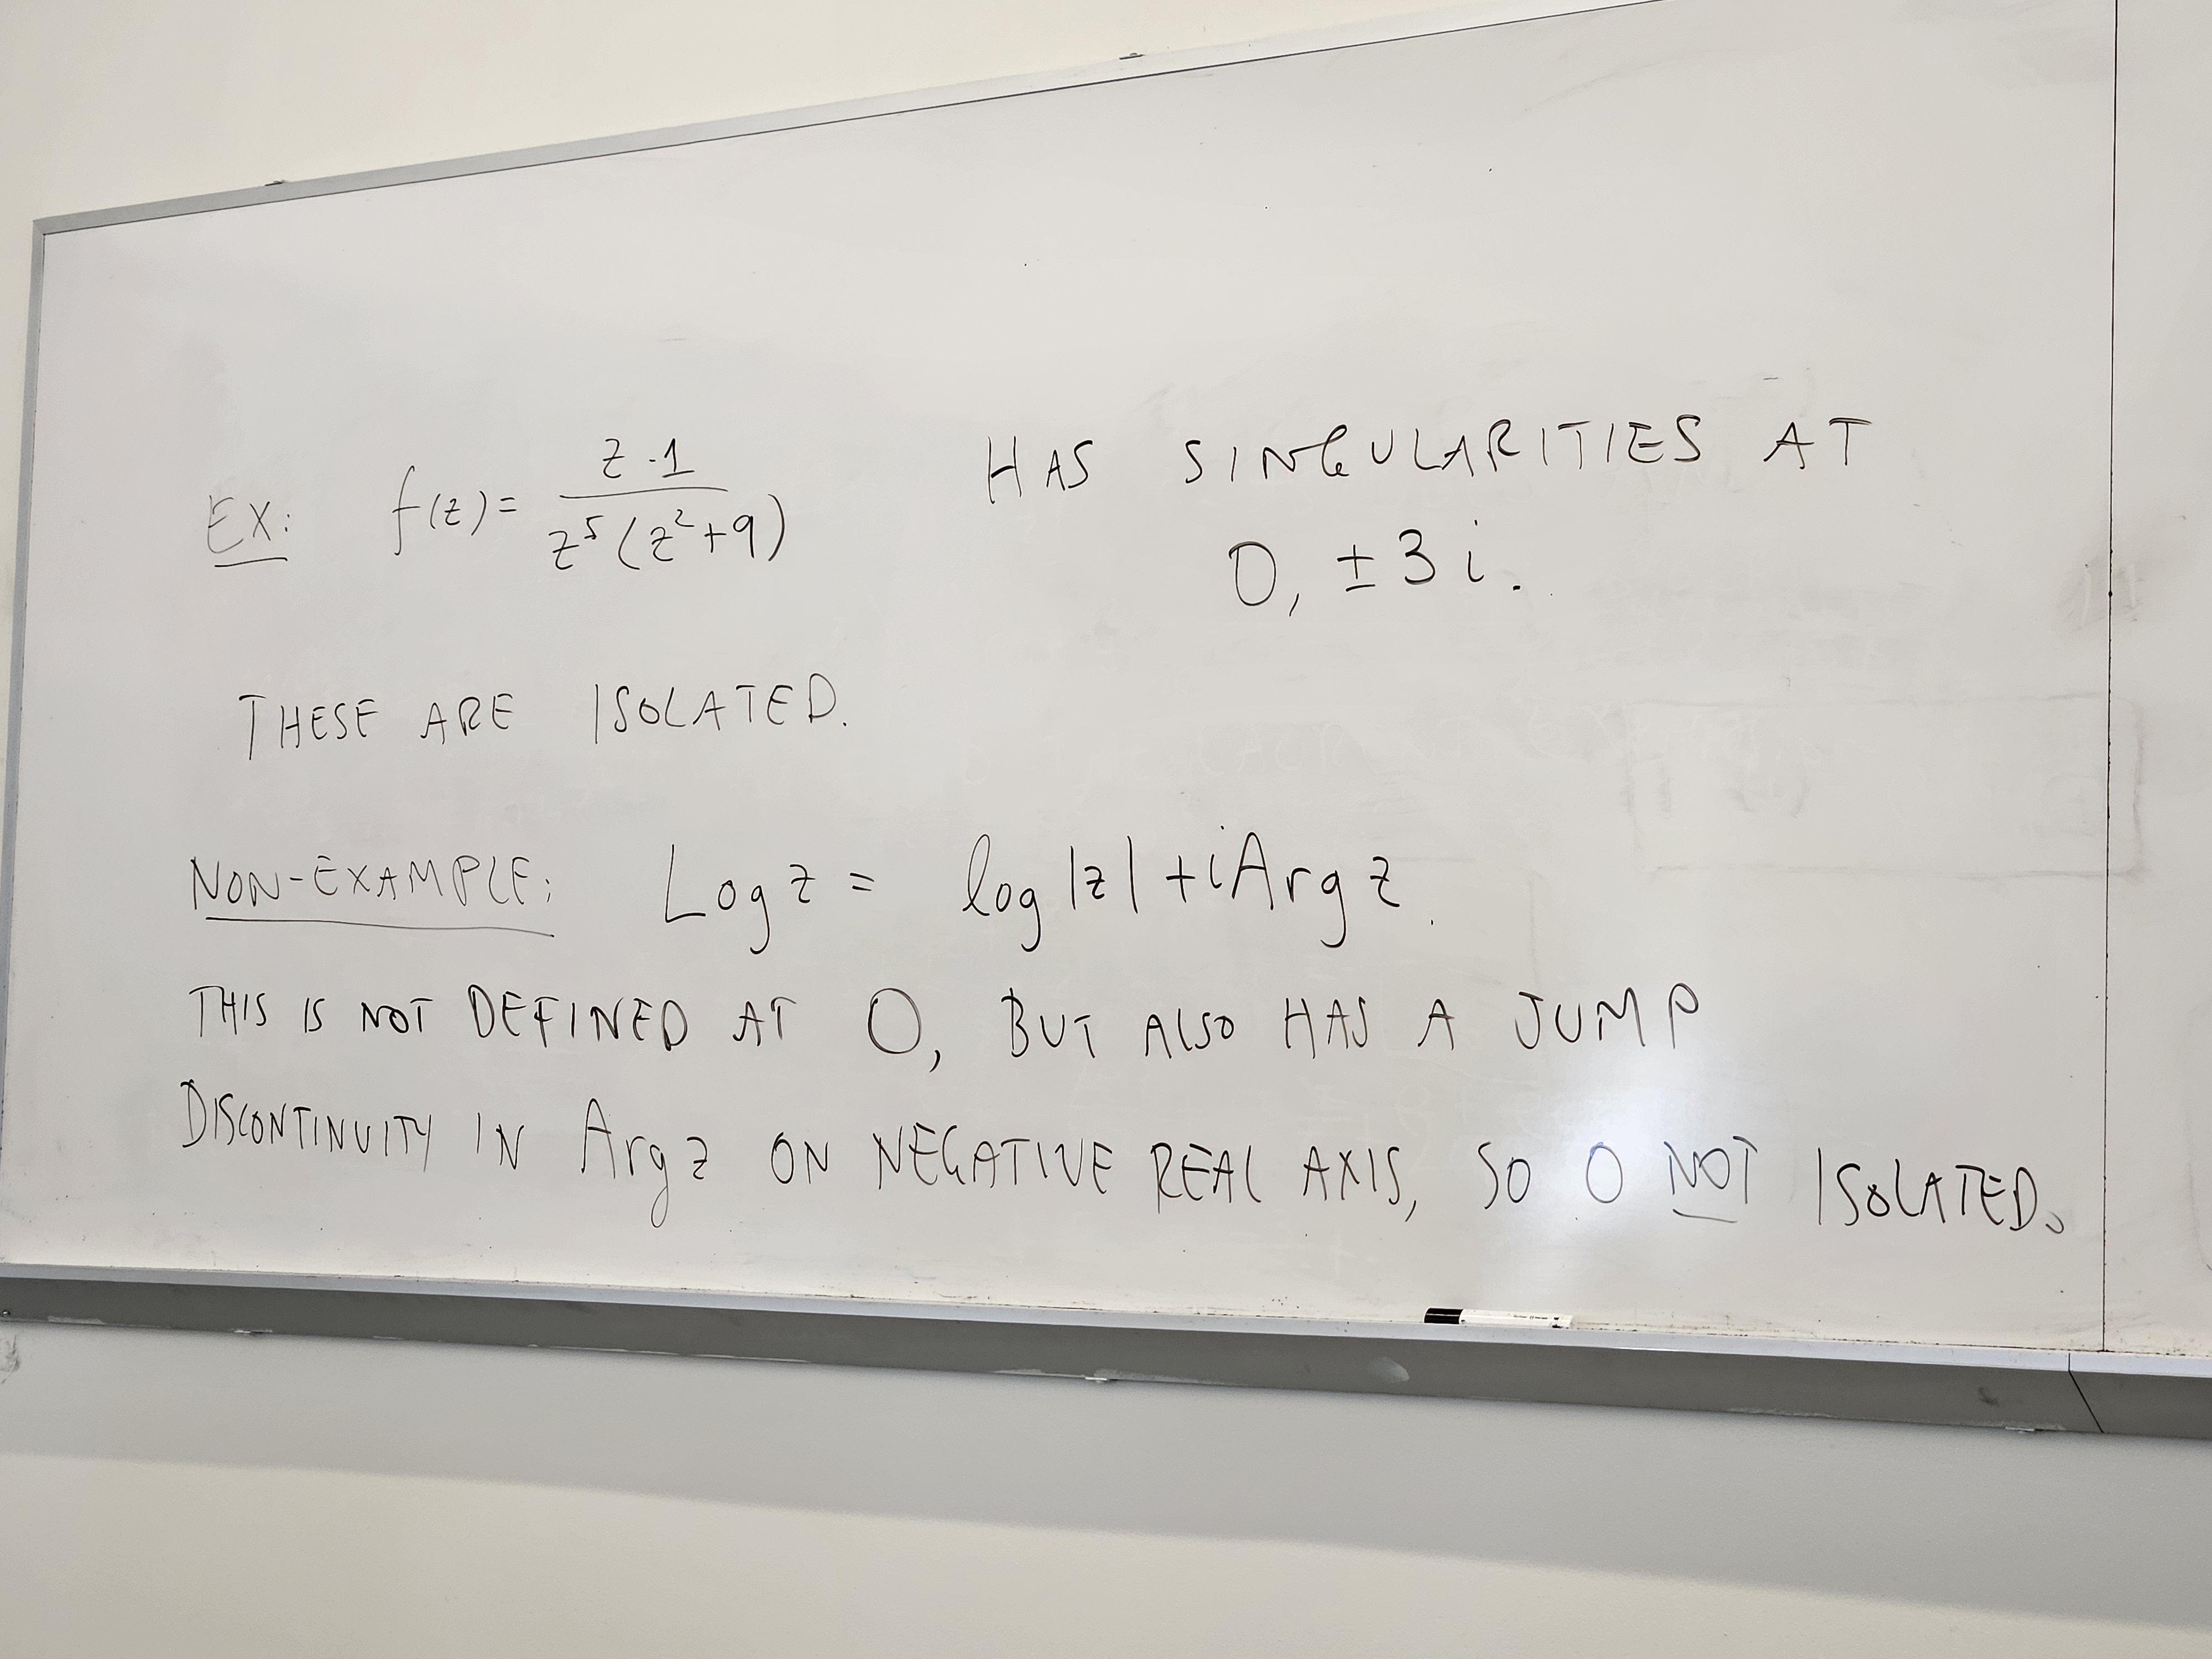 EX: f(z) = z-1 / z⁵(z²+9) HAS SINGULARITIES AT
0, ±3i.
THESE ARE ISOLATED.
NON-EXAMPLE: Log z = log |z| + i Arg z.
THIS IS NOT DEFINED AT 0, BUT ALSO HAS A JUMP
DISCONTINUITY IN Arg z ON NEGATIVE REAL AXIS, SO 0 NOT ISOLATED.